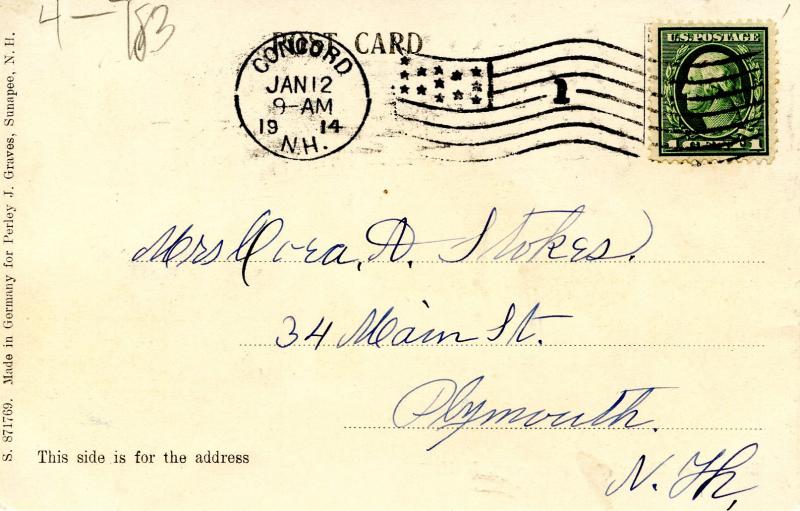 4-T83
POST CARD
CONCORD
JAN 12
9-AM
19 14
N.H.
1
U.S. POSTAGE
1 CENT 1
Mrs Cora, A. Stokes.
34 Main St.
Plymouth.
N. H,
This side is for the address
S. 871769. Made in Germany for Perley J. Graves, Sunapee, N. H.